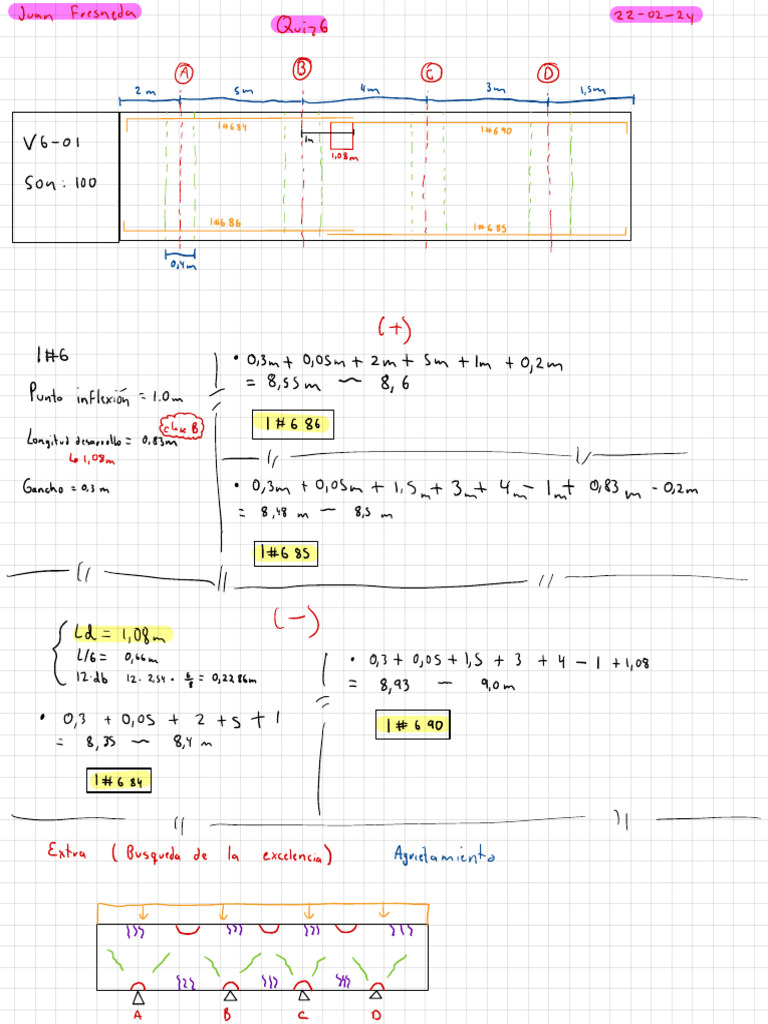 Juan Fresneda
Quiz 6
22-02-24
A B C D
2m 5m 4m 3m 1,5m
V6-01
Son: 100
1#684
1m
1,08m
1#690
1#686
1#685
0,4m
(+)
1#6
Punto inflexión = 1.0m
clase B
Longitud desarrollo = 0,83m
↳ 1,08m
Gancho = 0,3m
• 0,3m + 0,05m + 2m + 5m + 1m + 0,2m
= 8,55m ~ 8,6
1#686
• 0,3m + 0,05m + 1,5m + 3m + 4m - 1m + 0,83m - 0,2m
= 8,48m ~ 8,5m
1#685
(-)
Ld = 1,08m
L/6 = 0,66m
12·db 12 · 2,54 · 6/8 = 0,2286m
• 0,3 + 0,05 + 2 + 5 + 1
= 8,35 ~ 8,4m
1#684
• 0,3 + 0,05 + 1,5 + 3 + 4 - 1 + 1,08
= 8,93 ~ 9,0m
1#690
Extra (Busqueda de la excelencia) Agrietamiento
A B C D